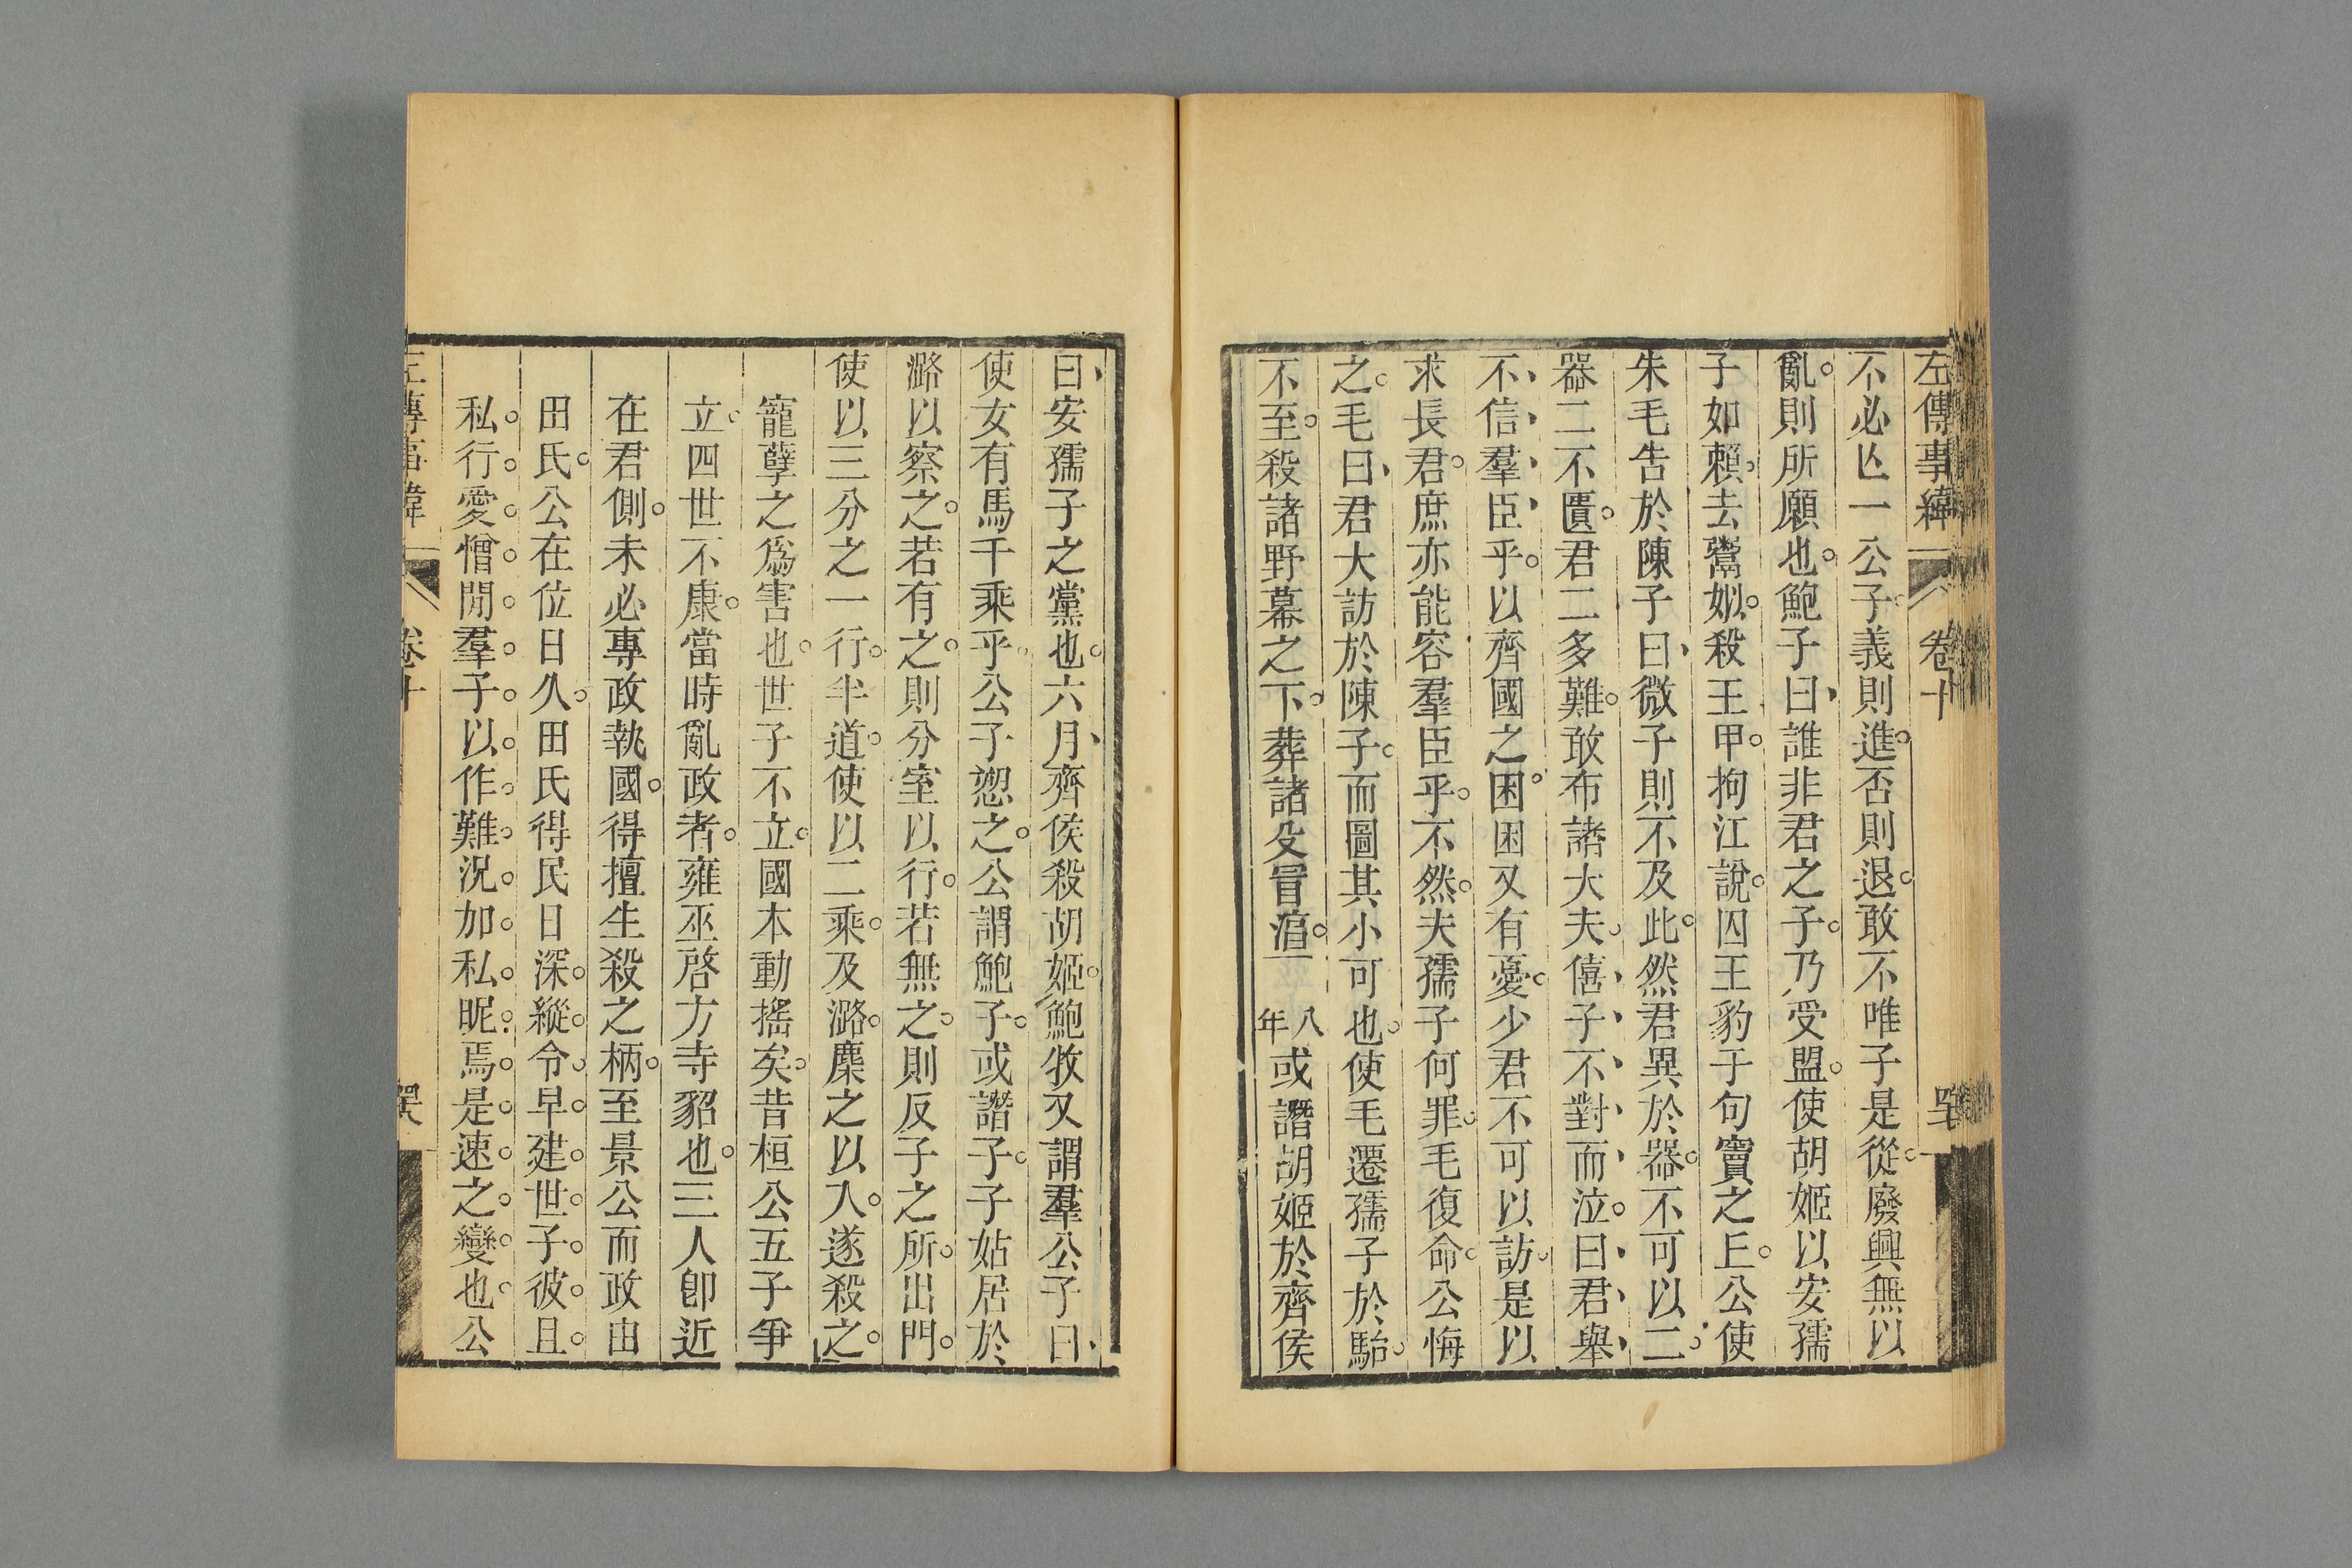 左傳事緯 卷十
不必亾一公子義則進否則退敢不唯子是從廢興無以
亂則所願也鮑子曰誰非君之子乃受盟使胡姬以安孺
子如賴去鬻姒殺王甲拘江說囚王豹于句竇之丘公使
朱毛告於陳子曰微子則不及此然君異於器不可以二
器二不匱君二多難敢布諸大夫僖子不對而泣曰君舉
不信羣臣乎以齊國之困困又有憂少君不可以訪是以
求長君庶亦能容羣臣乎不然夫孺子何罪毛復命公悔
之毛曰君大訪於陳子而圖其小可也使毛遷孺子於駘
不至殺諸野幕之下葬諸殳冒淳八年或譖胡姬於齊侯
曰安孺子之黨也六月齊侯殺胡姬鮑牧又謂羣公子曰
使女有馬千乘乎公子愬之公謂鮑子或譖子子姑居於
潞以察之若有之則分室以行若無之則反子之所出門
使以三分之一行半道使以二乘及潞麇之以入遂殺之
寵孽之爲害也世子不立國本動搖矣昔桓公五子爭
立四世不康當時亂政者雍巫啓方寺貂也三人卽近
在君側未必專政執國得擅生殺之柄至景公而政由
田氏公在位日久田氏得民日深縱令早建世子彼且
私行愛憎間羣子以作難況加私昵焉是速之變也公
左傳事緯 卷十